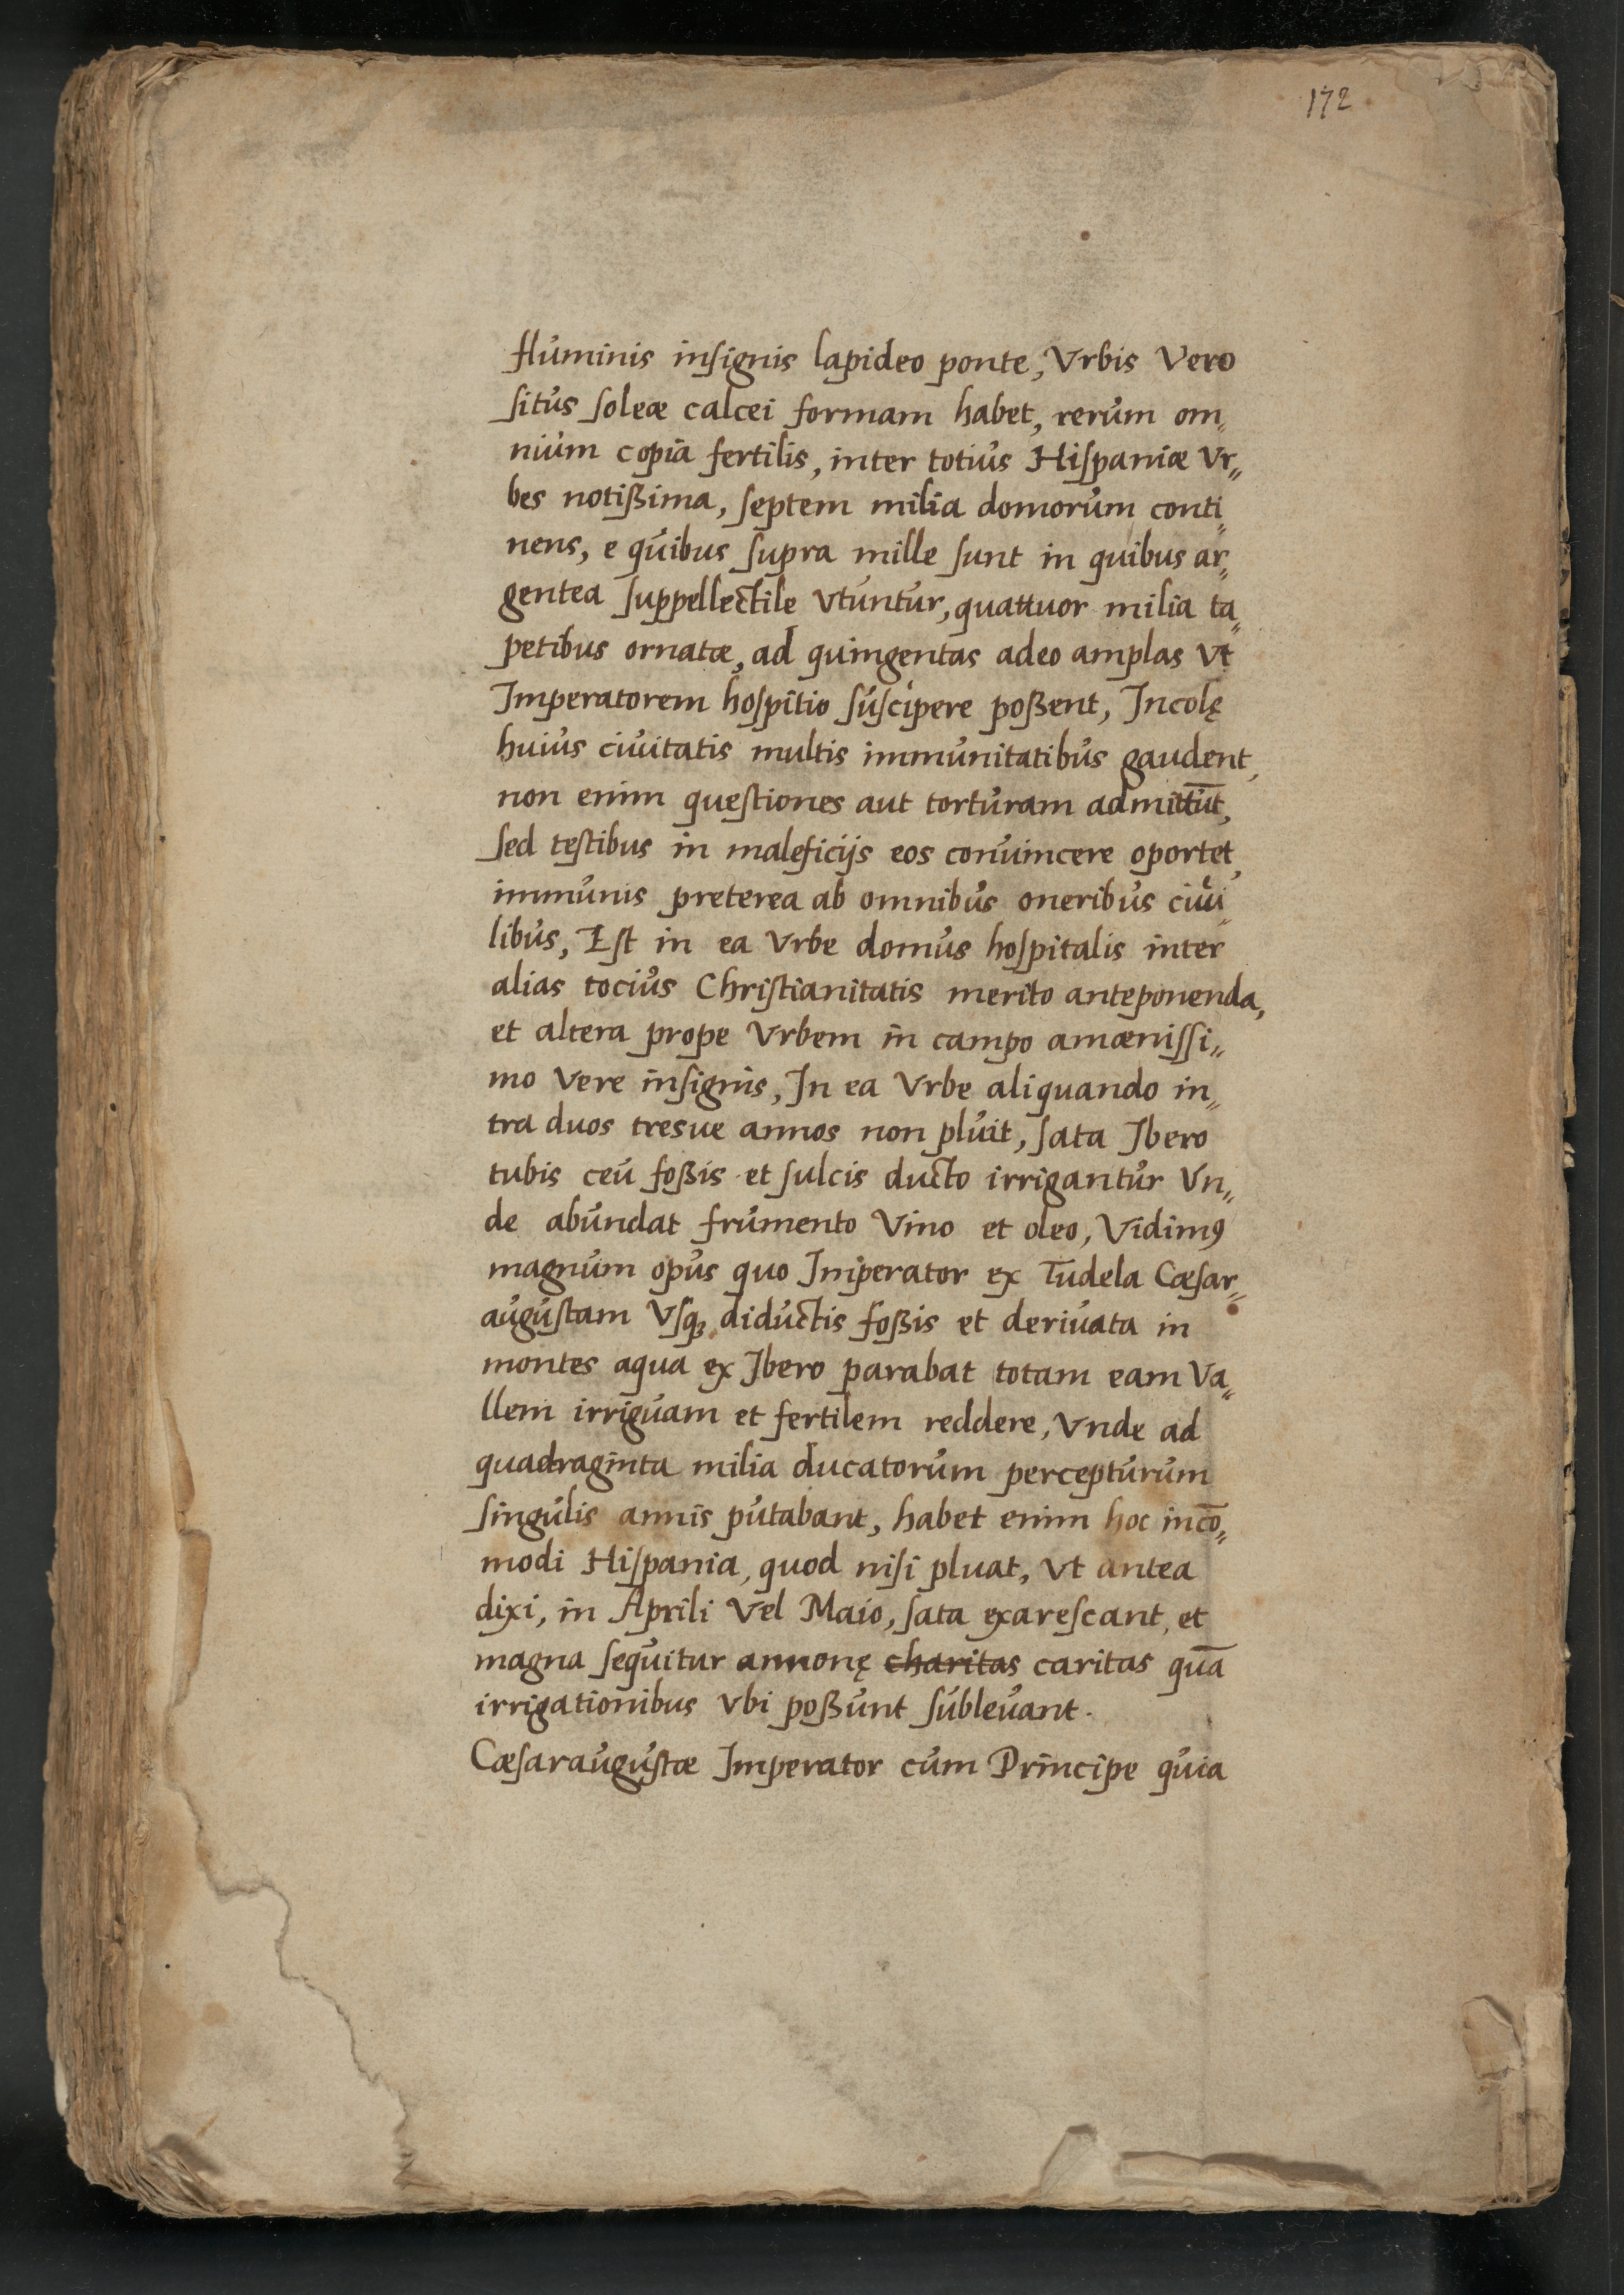 172
fluminis insignis lapideo ponte, Vrbis Vero
situs soleæ calcei formam habet, rerum om„
nium copia fertilis, inter totius Hispaniæ Vr„
bes notißima, septem milia domorum conti„
nens, e quibus supra mille sunt in quibus ar„
gentea suppellectile Vtuntur, quattuor milia ta„
petibus ornatæ, ad quingentas adeo amplas Vt
Imperatorem hospitio suscipere poßent, Incolę
huius ciuitatis multis immunitatibus gaudent,
non enim questiones aut torturam admittūt,
sed testibus in maleficijs eos conuincere oportet,
immunis preterea ab omnibus oneribus ciui„
libus, Est in ea Vrbe domus hospitalis inter
alias tocius Christianitatis merito anteponenda,
et altera prope Vrbem in campo amænissi„
mo Vere insignis, In ea Vrbe aliquando in„
tra duos tresue annos non pluit, sata Ibero
tubis ceu foßis et sulcis ducto irrigantur Vn„
de abundat frumento Vino et oleo, Vidimꝰ
magnum opus quo Imperator ex Tudela Cæsar„
augustam Vsqꝫ diductis foßis et deriuata in
montes aqua ex Ibero parabat totam eam Va„
llem irriguam et fertilem reddere, Vnde ad
quadraginta milia ducatorum percepturum
singulis annis putabant, habet enim hoc incō„
modi Hispania, quod nisi pluat, Vt antea
dixi, in Aprili Vel Maio, sata exarescant, et
magna sequitur annonę charitas caritas quā
irrigationibus Vbi poßunt subleuant.
Cæsaraugustæ Imperator cum Principe quia